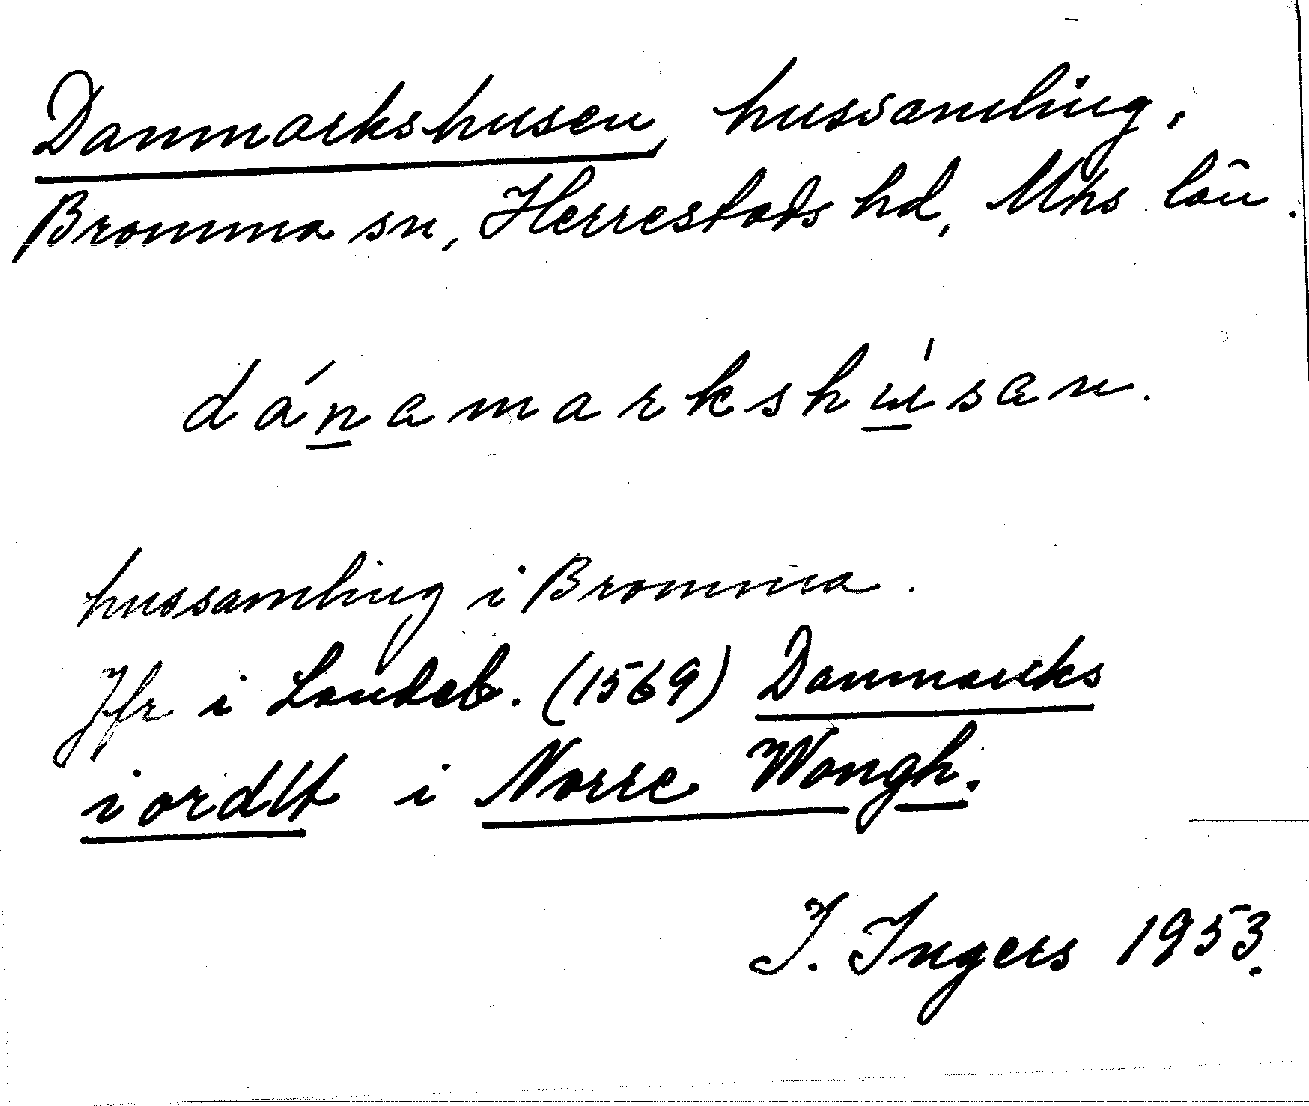 Danmarkshusen, hussamling,
Bromma sn, Herrestads hd, Mhs län.
dánamarkshúsan.
hussamling i Bromma.
Jfr i Landeb. (1569) Danmarcks
iordtt i Norre Wongh.
I. Ingers 1953.